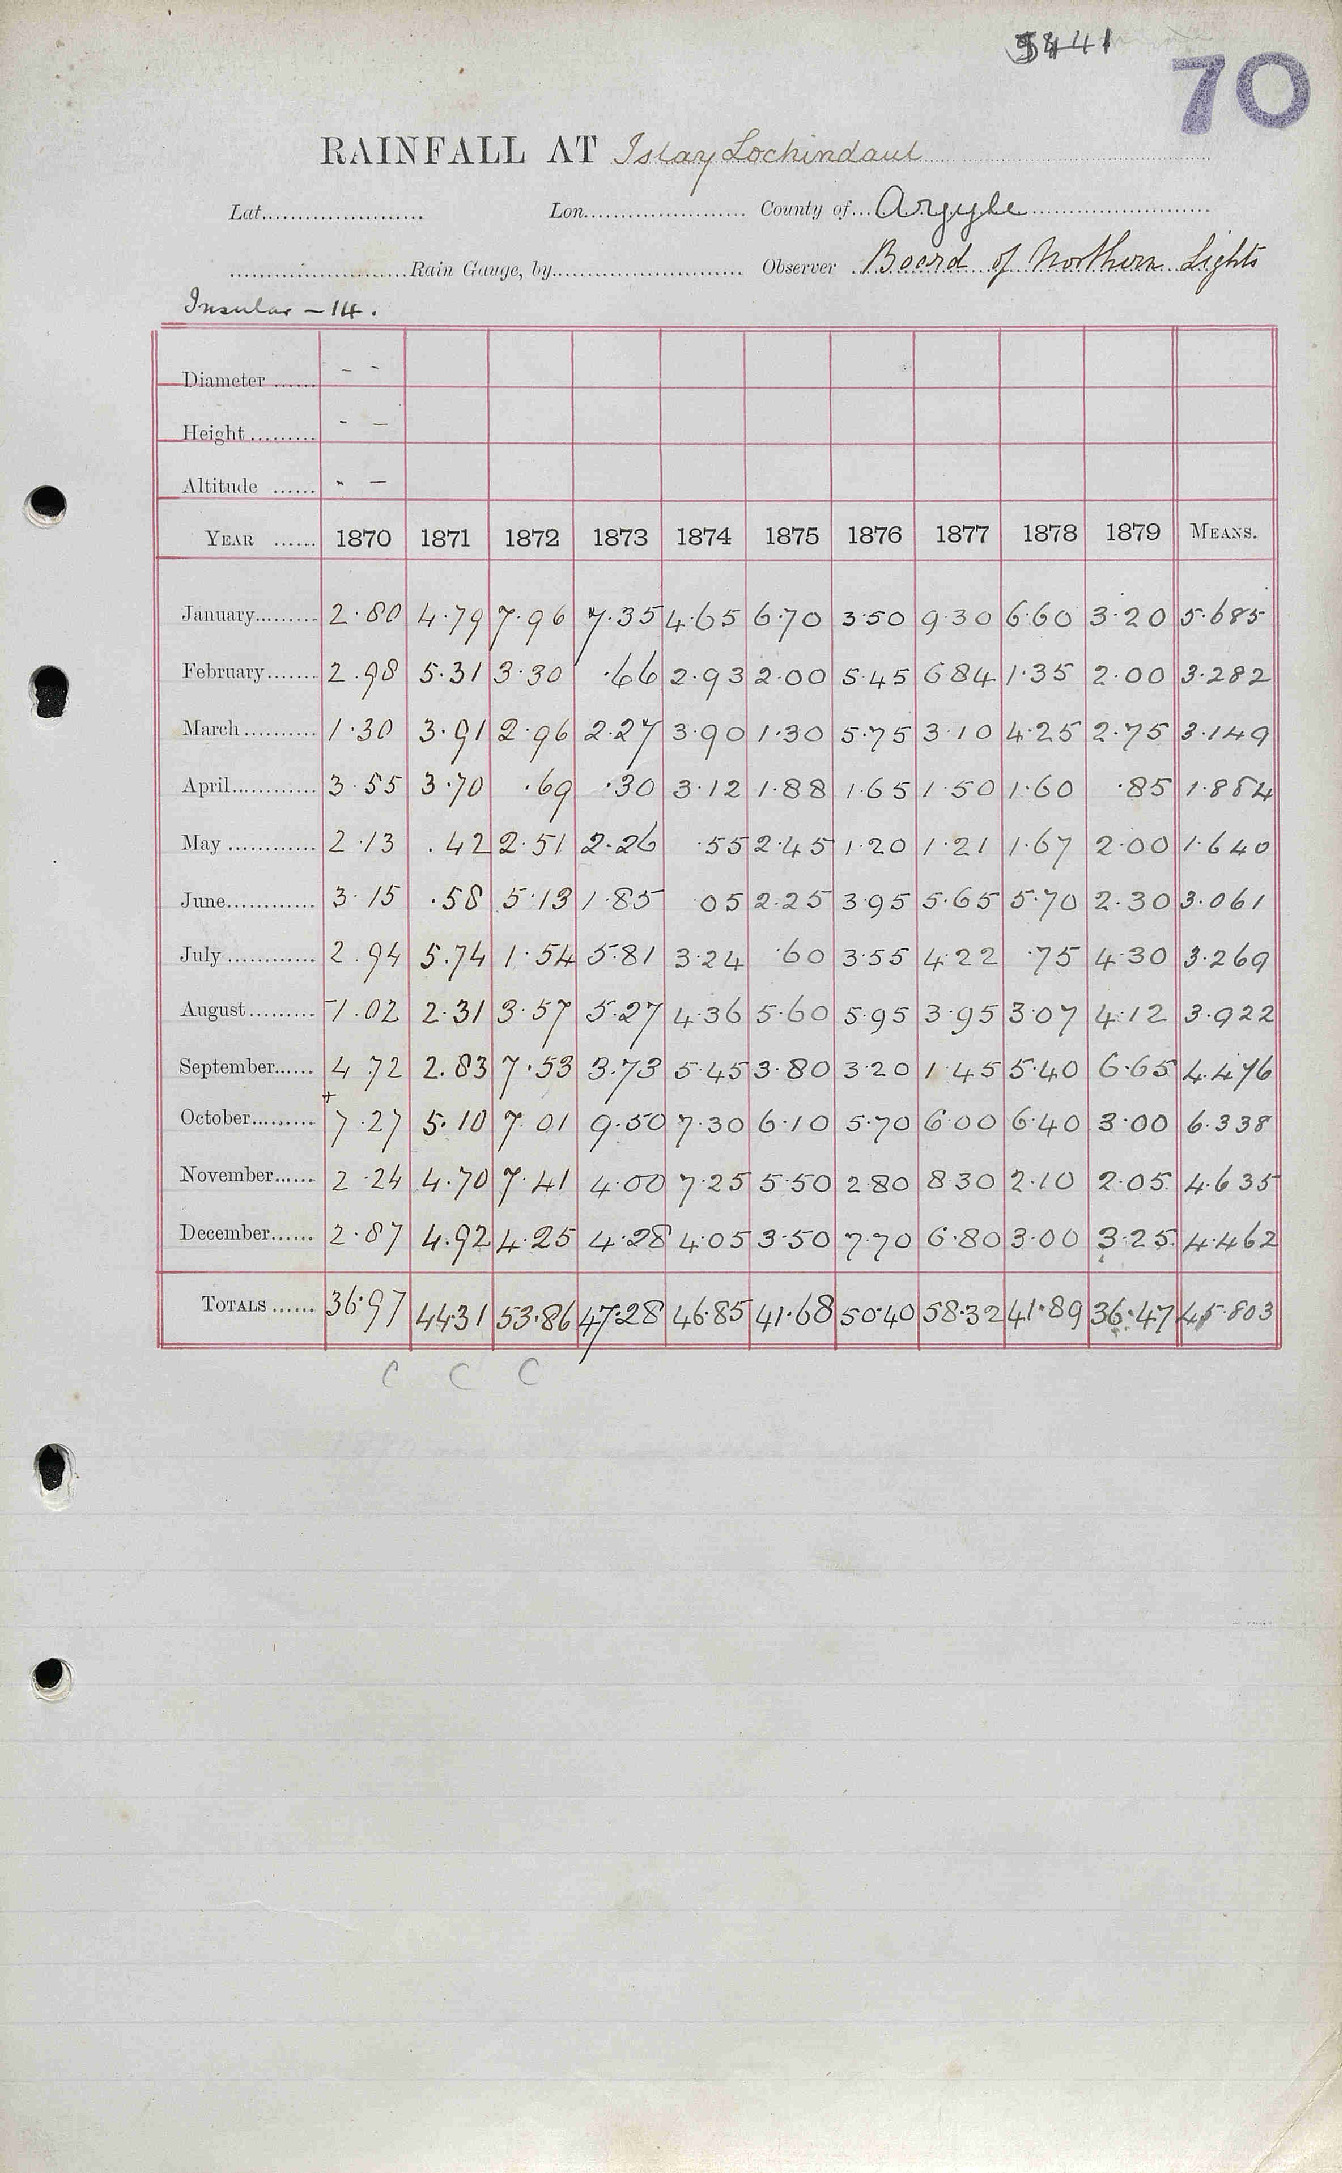 5441
70
RAINFALL AT Islay Lochindaul
Lat. Lon. County of Argyle
Rain Gauge, by Observer Board of Northern Lights
Insular - 14.
Diameter - -
Height - -
Altitude - -
YEAR 1870 1871 1872 1873 1874 1875 1876 1877 1878 1879 MEANS.
January 2.80 4.79 7.96 7.35 4.65 6.70 3.50 9.30 6.60 3.20 5.685
February 2.98 5.31 3.30 .66 2.93 2.00 5.45 6.84 1.35 2.00 3.282
March 1.30 3.91 2.96 2.27 3.90 1.30 5.75 3.10 4.25 2.75 3.149
April 3.55 3.70 .69 .30 3.12 1.88 1.65 1.50 1.60 .85 1.884
May 2.13 .42 2.51 2.26 .55 2.45 1.20 1.21 1.67 2.00 1.640
June 3.15 .58 5.13 1.85 05 2.25 3.95 5.65 5.70 2.30 3.061
July 2.94 5.74 1.54 5.81 3.24 .60 3.55 4.22 .75 4.30 3.269
August 1.02 2.31 3.57 5.27 4.36 5.60 5.95 3.95 3.07 4.12 3.922
September 4.72 2.83 7.53 3.73 5.45 3.80 3.20 1.45 5.40 6.65 4.476
October 7.27 5.10 7.01 9.50 7.30 6.10 5.70 6.00 6.40 3.00 6.338
November 2.24 4.70 7.41 4.00 7.25 5.50 2.80 8.30 2.10 2.05 4.635
December 2.87 4.92 4.25 4.28 4.05 3.50 7.70 6.80 3.00 3.25 4.462
TOTALS 36.97 44.31 53.86 47.28 46.85 41.68 50.40 58.32 41.89 36.47 45.803
C C C